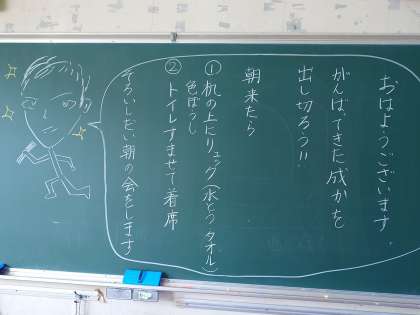 おはようございます。
がんばってきた成かを
出し切ろう!!
朝来たら
①机の上にリュック(水とう タオル)
色ぼうし
②トイレすませて着席
そろいしだい朝の会をします